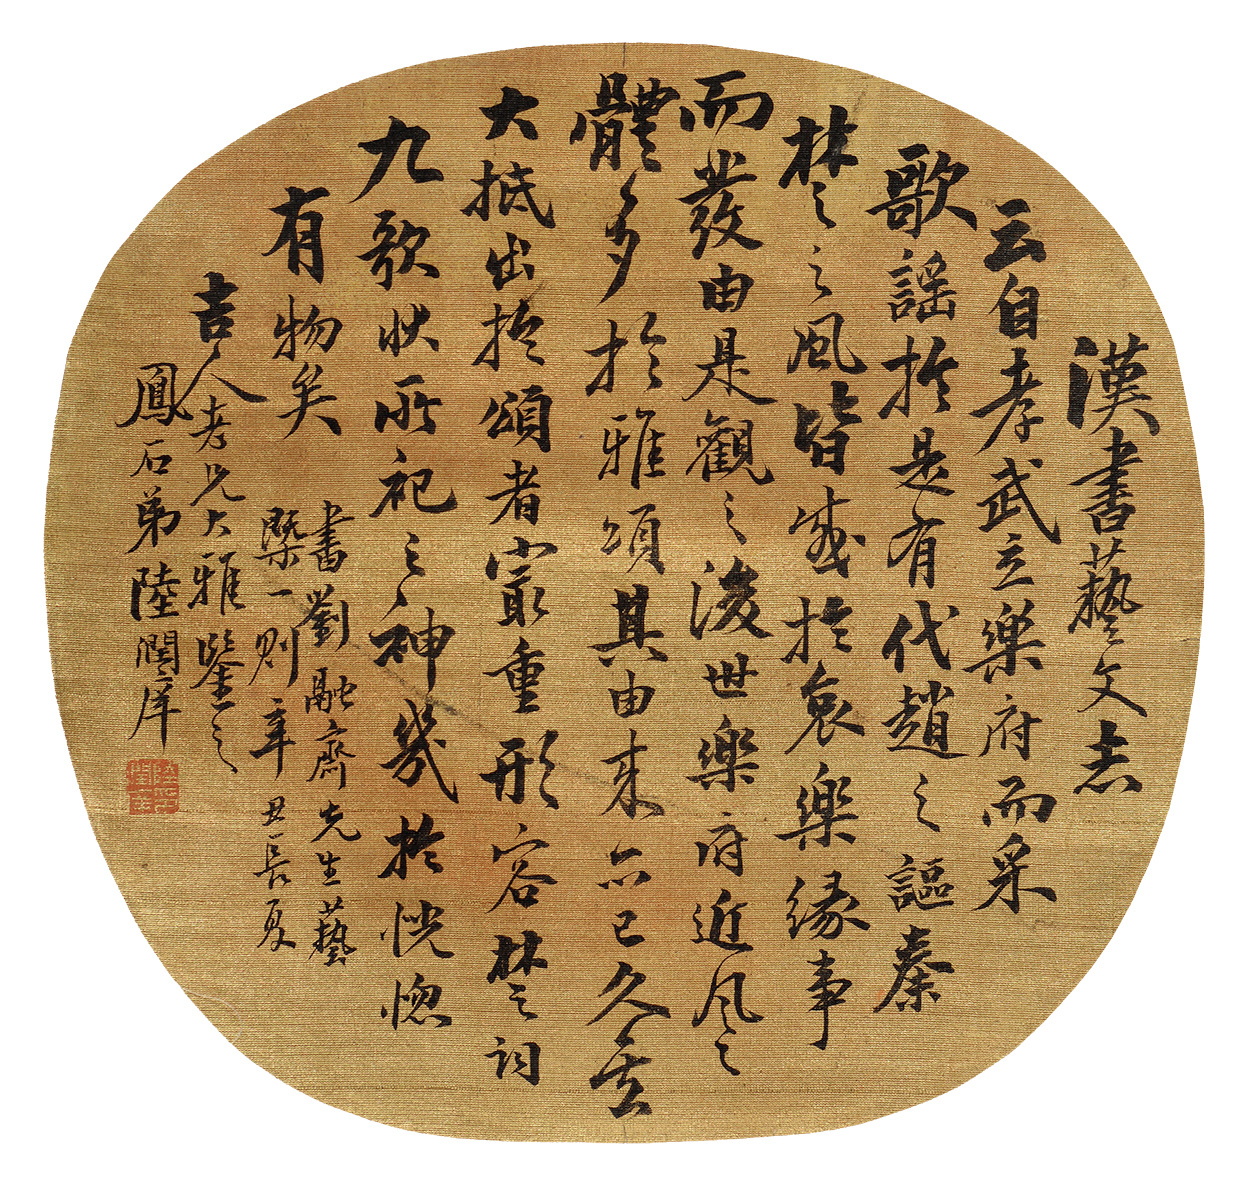 漢書藝文志
云自孝武立樂府而采
歌謠於是有代趙之謳秦
楚之風皆感於哀樂緣事
而發由是觀之後世樂府近風之
體多於雅頌其由來亦已久矣
大抵出於頌者最重形容楚詞
九歌狀所祀之神幾於恍惚
有物矣
書劉融齋先生藝
槩一則辛丑長夏
吉人老兄大雅鑒之
鳳石弟陸潤庠